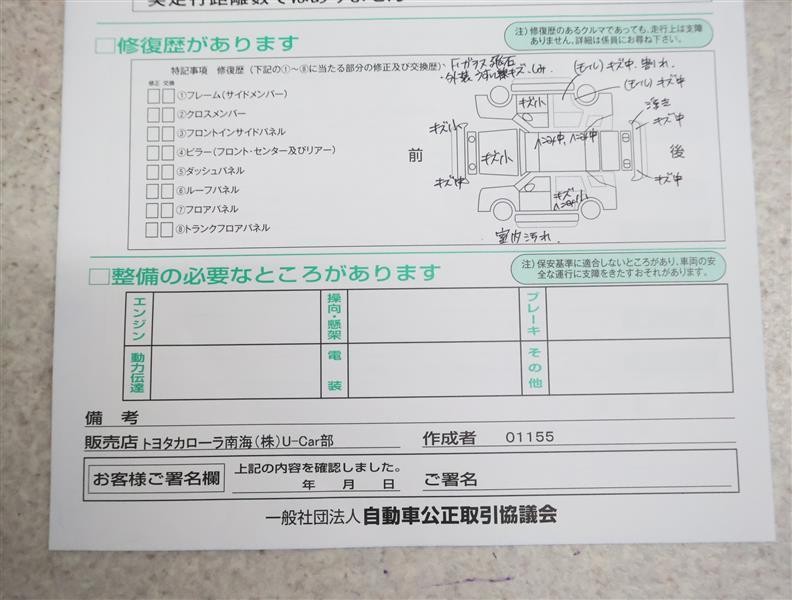 □修復歴があります
注）修復歴のあるクルマであっても、走行上は支障ありません。詳細は係員にお尋ね下さい。
特記事項 修復歴（下記の①～⑧に当たる部分の修正及び交換歴）、
修正 交換
①フレーム（サイドメンバー）
②クロスメンバー
③フロントインサイドパネル
④ピラー（フロント・センター及びリアー）
⑤ダッシュパネル
⑥ルーフパネル
⑦フロアパネル
⑧トランクフロアパネル
F・ガラス飛石
・外装 うすい線キズ・しみ
(モール)キズ中 割れ
(モール)キズ中
キズ小
浮き
キズ中
キズ小
キズ小
ヘこみ中
ヘこみ中
前
後
キズ中
キズ中
キズ
ヘこみ小
室内汚れ
□整備の必要なところがあります
注）保安基準に適合しないところがあり、車両の安全な運行に支障をきたすおそれがあります。
エンジン
操向・懸架
ブレーキ
動力伝達
電装
その他
備考
販売店 トヨタカローラ南海（株）U-Car部
作成者 01155
お客様ご署名欄
上記の内容を確認しました。
年 月 日
ご署名
一般社団法人 自動車公正取引協議会